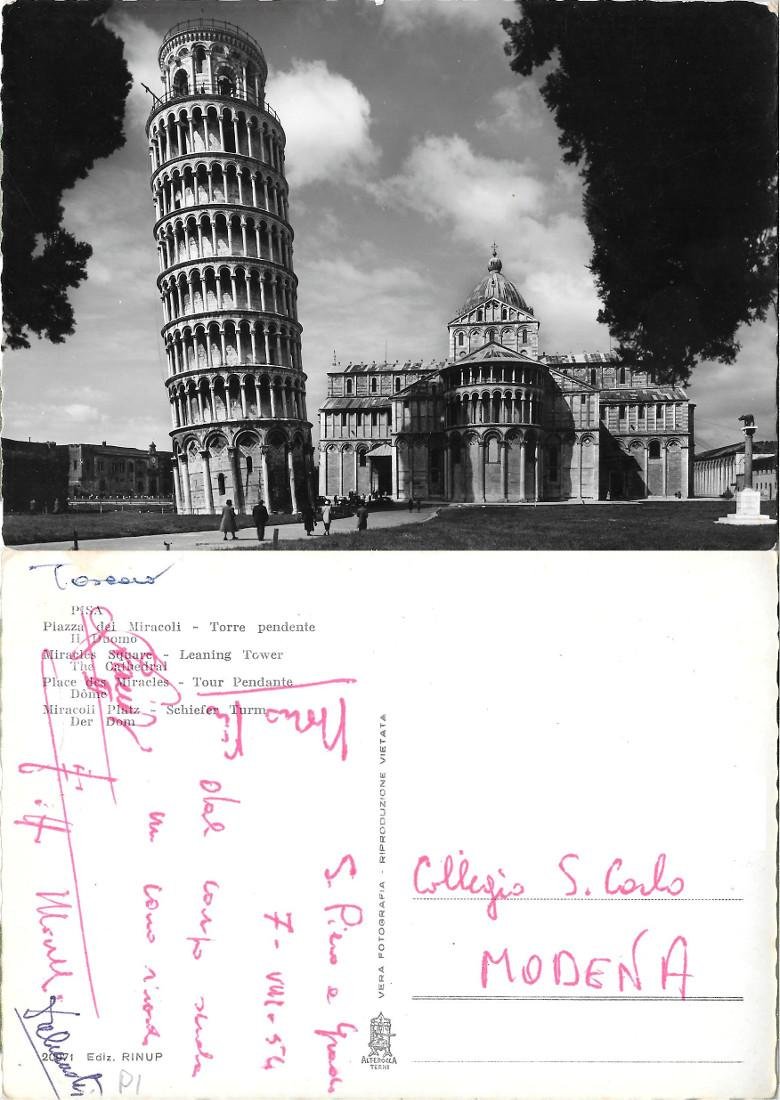 Toscana
PISA
Piazza dei Miracoli - Torre pendente
Il Duomo
Miracles Square - Leaning Tower
The Cathedral
Place des Miracles - Tour Pendante
Dôme
Miracoli Platz - Schiefer Turm
Der Dom
S. Piero a Grado
7 - VIII - 54
dal campo scuola
un caro ricordo
VERA FOTOGRAFIA - RIPRODUZIONE VIETATA
Collegio S. Carlo
MODENA
20971 Ediz. RINUP
ALTEROCCA
TERNI
PI